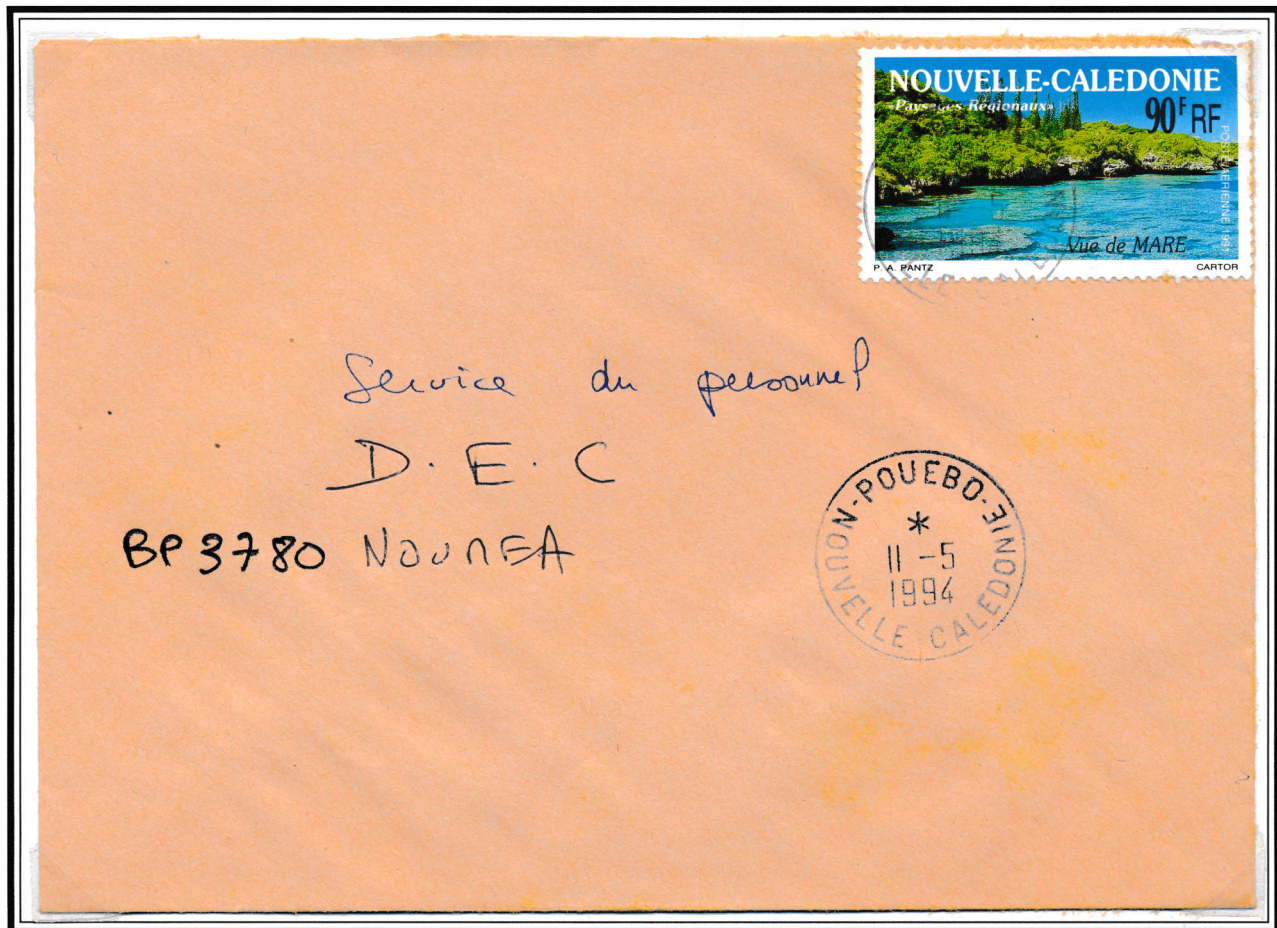 NOUVELLE-CALEDONIE
«Paysages Régionaux»
90F RF
POSTE AERIENNE
Vue de MARE
P. A. PANTZ CARTOR
Service du personnel
D. E. C
BP 3780 NOUMEA
NION-POUEBO-
*
11 -5
1994
NOUVELLE CALEDONIE